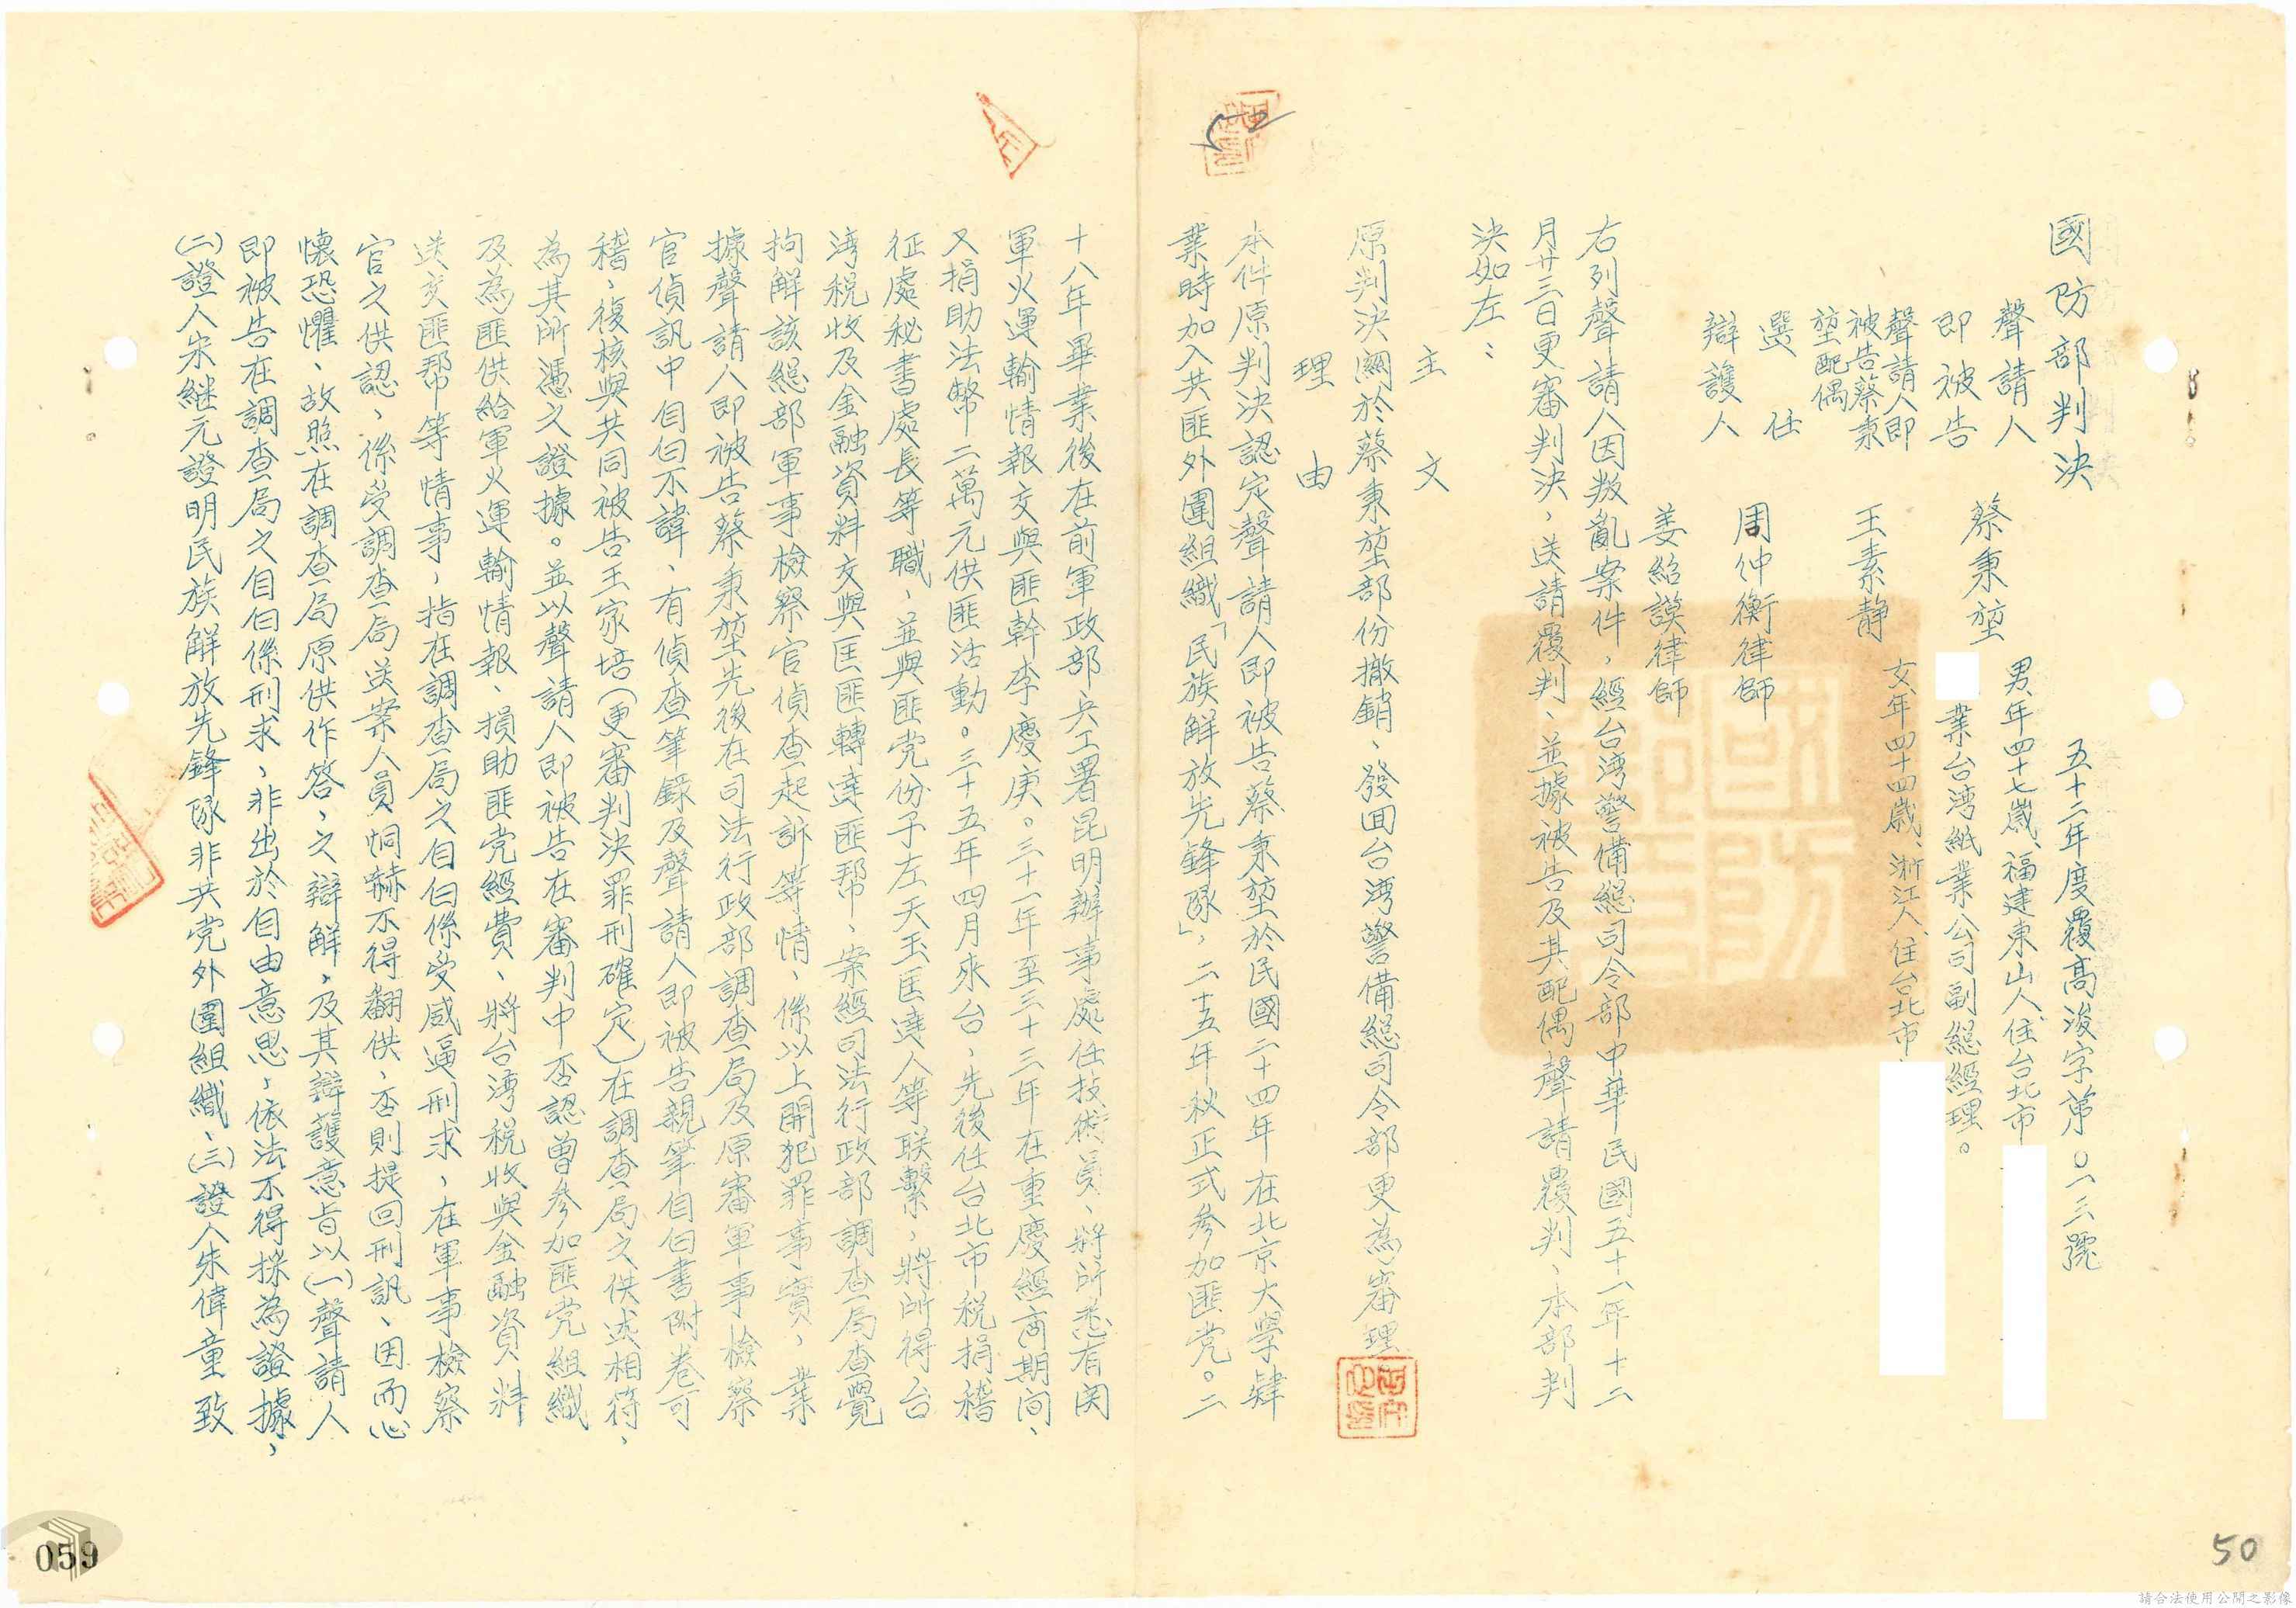 國防部判決
五十二年度覆高浚字第〇一三號
聲請人
即被告
蔡秉堃
男年四十七歲、福建東山人住台北市
業台湾紙業公司副總經理。
聲請人即
被告蔡秉
堃配偶
王素靜
女年四十四歲、浙江人、住台北市
選任
辯護人
周仲衡律師
姜紹謨律師
右列聲請人因叛亂案件，經台湾警備總司令部中華民國五十一年十二
月廿三日更審判決，送請覆判、並據被告及其配偶聲請覆判、本部判
決如左：
主文
原判決關於蔡秉堃部份撤銷、發回台湾警備總司令部更為審理
理由
本件原判決認定聲請人即被告蔡秉堃於民國二十四年在北京大學肄
業時加入共匪外圍組織「民族解放先鋒隊」，二十五年秋正式參加匪党。二
十八年畢業後在前軍政部兵工署昆明辦事處任技術員、將所悉有関
軍火運輸情報交與匪幹李慶庚。三十一年至三十三年在重慶經商期间、
又捐助法幣二萬元供匪活動。三十五年四月來台、先後任台北市稅捐稽
征處秘書處長等職，並與匪党份子左天玉匡達人等联繫，將所得台
湾稅收及金融資料交與匡匪轉達匪幫、案經司法行政部調查局查覺
拘解該總部軍事檢察官偵查起訴等情、係以上開犯罪事實，業
據聲請人即被告蔡秉堃先後在司法行政部調查局及原審軍事檢察
官偵訊中自白不諱、有偵查筆錄及聲請人即被告親筆自白書附卷可
稽、復核與共同被告王家培（更審判決罪刑確定）在調查局之供述相符、
為其所憑之證據。並以聲請人即被告在審判中否認曾參加匪党組織
及為匪供給軍火運輸情報、捐助匪党經費、將台湾稅收與金融資料
送交匪幫等情事，指在調查局之自白係受威逼刑求，在軍事檢察
官之供認、係受調查局送案人員恫嚇不得翻供、否則提回刑訊、因而心
懷恐懼、故照在調查局原供作答，之辯解，及其辯護意旨以(一)聲請人
即被告在調查局之自白係刑求、非出於自由意思，依法不得採為證據，
(二)證人宋継元證明民族解放先鋒隊非共党外圍組織、(三)證人朱偉童致
059
50
請合法使用公開之影像